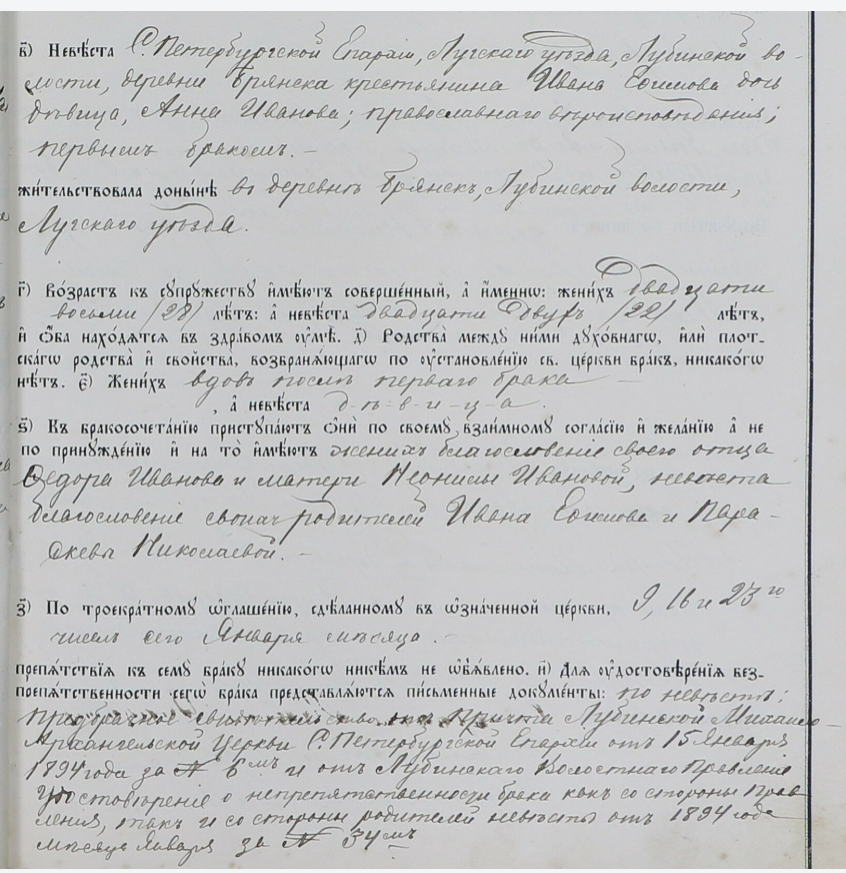 в҃) Невѣ́ста С. Петербургской Епархіи, Лугскаго уѣзда, Лубинской во-
лости, деревни Брянска крестьянина Ивана Ефимова дочь
дѣвица, Анна Иванова; православнаго вѣроисповѣданія;
первымъ бракомъ. —
жи́тельствовала доны́нѣ въ деревнѣ Брянскъ, Лубинской волости,
Лугскаго уѣзда.
г҃) Во́зрастъ къ сꙋпрꙋ́жествꙋ и҆мѣ́ютъ соверше́нный, а҆ и҆́меннѡ: жени́хъ Двадцати
восьми /28/ лѣ́тъ: а҆ невѣ́ста двадцати двухъ /22/ лѣ́тъ,
и҆ ѻ҆́ба нахо́дѧтсѧ въ здра́вомъ ᲂу҆мѣ̀. д҃) Родства̀ междꙋ̀ ни́ми дꙋхо́внагѡ, и҆лѝ пло́т-
ска́гѡ родства̀ и҆ сво́йства, возбранѧ́ющагѡ по ᲂу҆становле́нїю св. це́ркви бра́къ, никако́гѡ
нѣ́тъ. є҃) Жени́хъ вдовъ послѣ перваго брака —
, а҆ невѣ́ста д-ѣ-в-и-ц-а.
ѕ҃) Къ бракосочета́нїю пристꙋпа́ютъ ѻ҆нѝ по своемꙋ̀ взаи́мномꙋ согла́сїю и҆ жела́нїю а҆ не
по принꙋжде́нїю и҆ на то̀ и҆мѣ́ютъ женихъ благословеніе своего отца
Ѳедора Иванова и матери Неонисы Ивановой, невѣста
благословеніе своихъ родителей Ивана Ефимова и Пара-
скевы Николаевой. —
з҃) По троекра́тномꙋ ѡ҆глаше́нїю, сдѣ́ланномꙋ въ ѡ҆зна́ченной це́ркви, 9, 16 и 23го
чиселъ сего Января мѣсяца. —
препѧ́тствїѧ къ семꙋ̀ бра́кꙋ никако́гѡ никѣ́мъ не ѡ҆б̾ѧ́влено. и҃) Длѧ ᲂу҆достовѣре́нїѧ без-
препѧ́тственности сегѡ̀ бра́ка представлѧ́ютсѧ пи́сьменные докꙋме́нты: по невѣстѣ:
предбрачное свидѣтельство отъ Причта Лубинской Михаило-
Архангельской Церкви С. Петербургской Епархіи отъ 15 Января
1894 года за № 6мъ и отъ Лубинскаго Волостнаго Правленія
Удостовѣреніе о непрепятственности брака какъ со стороны Прав
ленія, такъ и со стороны родителей невѣсты отъ 1894 года
мѣсяца Января за № 34мъ